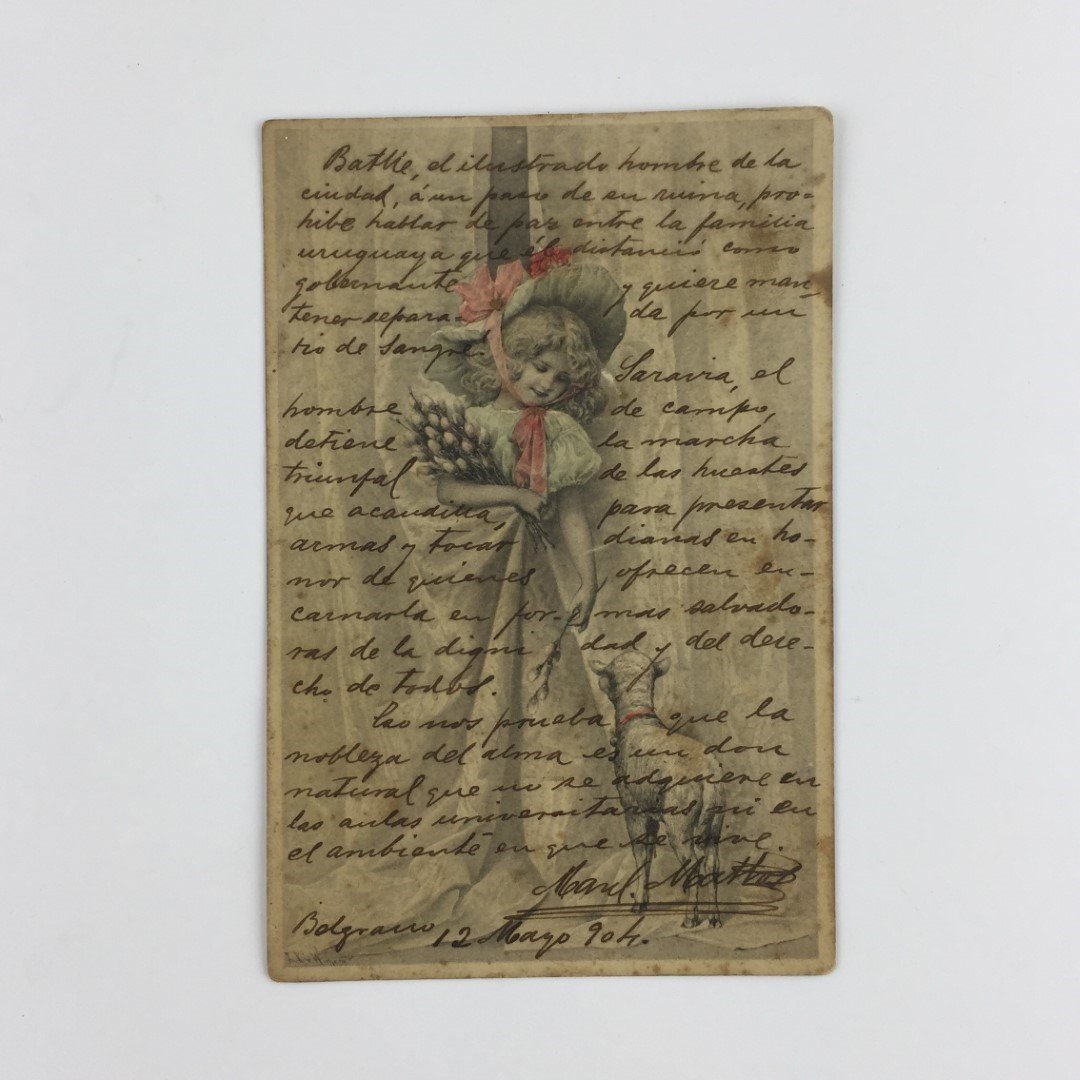 Batlle, el ilustrado hombre de la
ciudad, á un paso de su ruina, pro-
hibe hablar de paz entre la familia
uruguaya que él distanció como
gobernante y quiere man-
tener separa- da por un
rio de sangre.
Saravia, el
hombre de campo,
detiene la marcha
triunfal de las huestes
que acaudilla, para presentar
armas y tocar dianas en ho-
nor de quienes ofrecen en-
carnarla en for- mas salvado-
ras de la digni dad y del dere-
cho de todos.
Eso nos prueba que la
nobleza del alma es un don
natural que no se adquiere en
las aulas universitarias ni en
el ambiente en que se vive.
Manl. Mattos
Belgrano 12 Mayo 904.